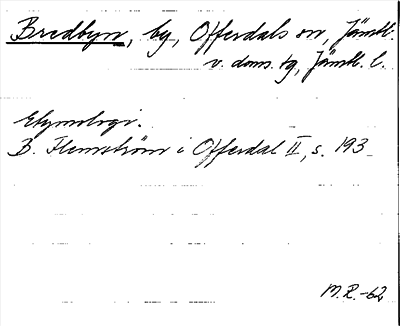 Bredbyn, by, Offerdals sn, Jämtl.
v. doms. tg, Jämtl. l.
Etymologi:
B. Flemström i Offerdal II, s. 193
M.R.-62